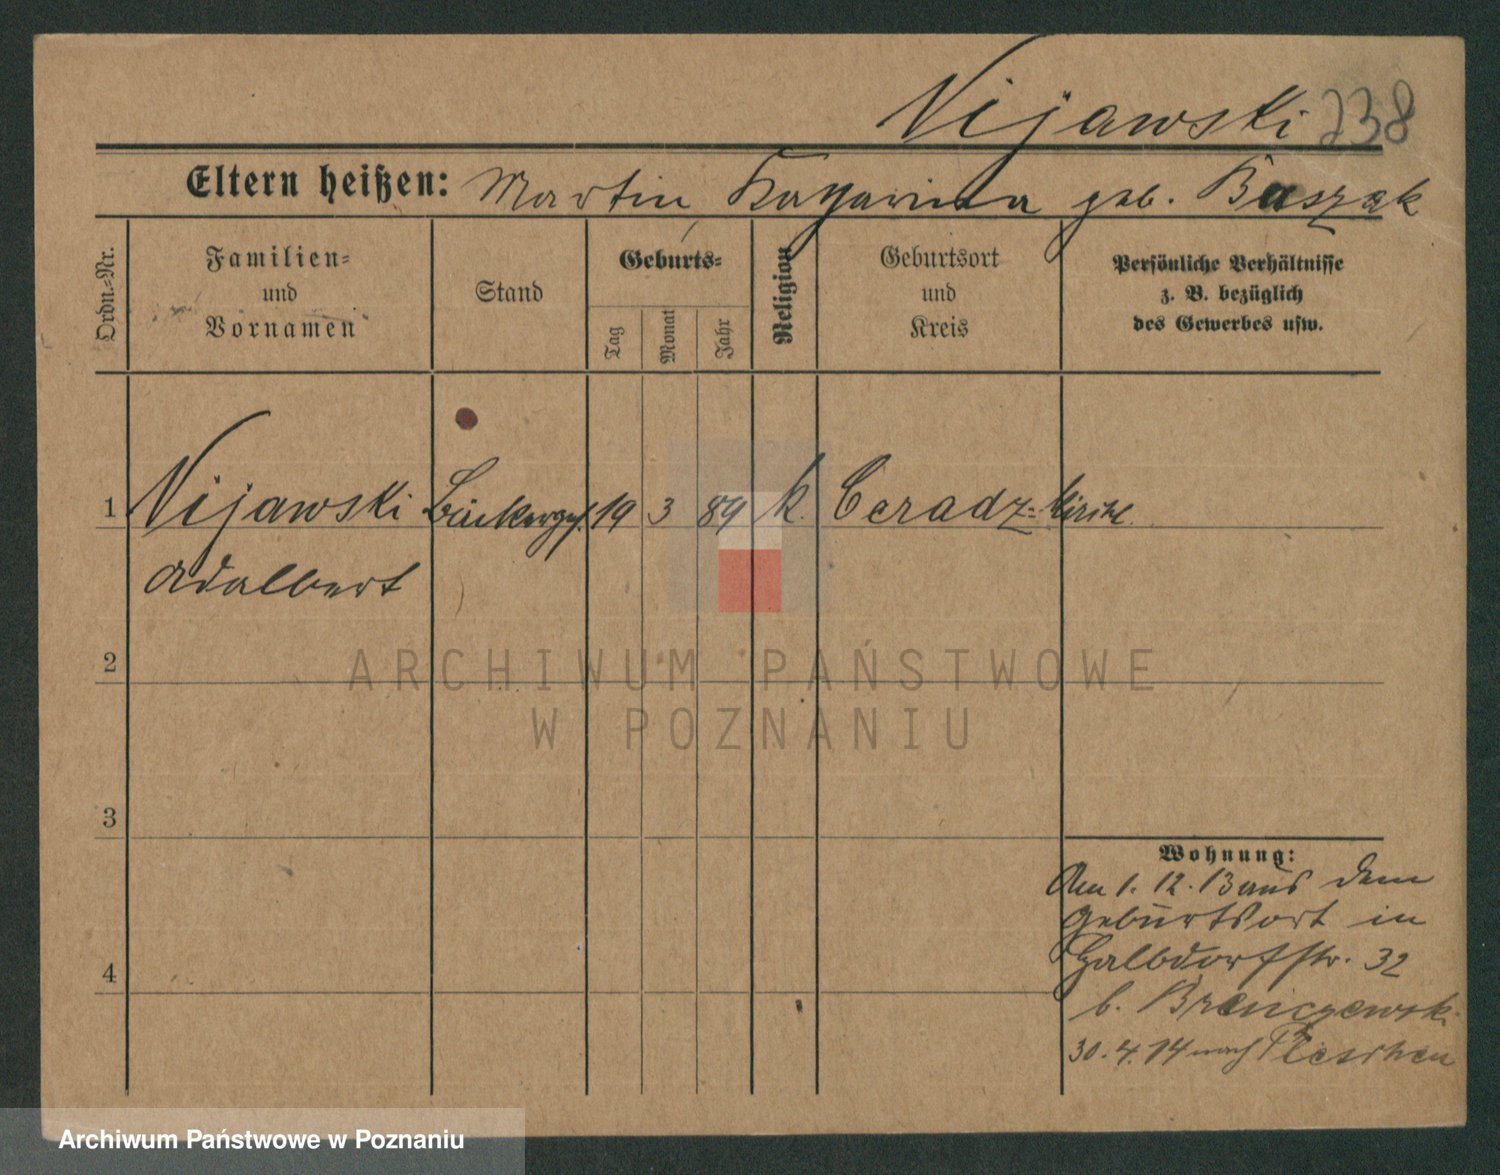 Nijawski 238
Eltern heißen: Martin Katharina geb. Baszak
Ordn.-Nr.
Familien- und Vornamen
Stand
Geburts-
Tag
Monat
Jahr
Religion
Geburtsort und Kreis
Persönliche Verhältnisse
z. B. bezüglich
des Gewerbes usw.
1 Nijawski Bäckerges. 19 3 89 k. Ceradz-Kirchl.
Adalbert
2
ARCHIWUM PAŃSTWOWE
W POZNANIU
3
Wohnung:
Am 1. 12. 13 aus dem
Geburtsort in
Halbdorfstr. 32
b.
4
30. 4. 14 nach Pleschen
Archiwum Państwowe w Poznaniu